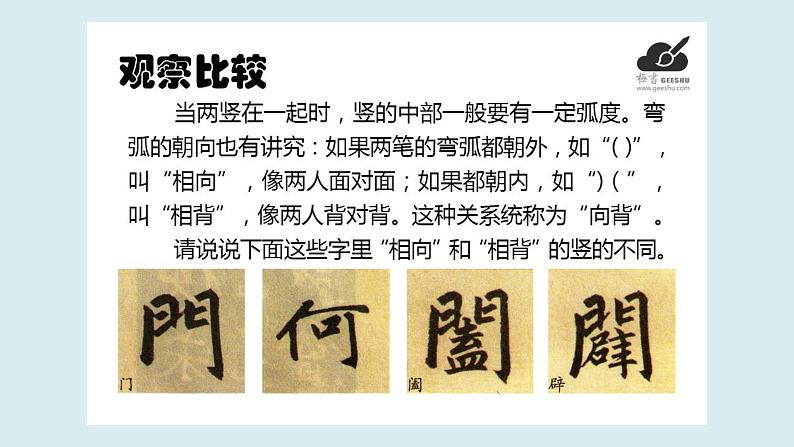 观察比较
極書 GEESHU
www.geeshu.com
当两竖在一起时，竖的中部一般要有一定弧度。弯
弧的朝向也有讲究：如果两笔的弯弧都朝外，如“( )”，
叫“相向”，像两人面对面；如果都朝内，如“)( ”，
叫“相背”，像两人背对背。这种关系统称为“向背”。
请说说下面这些字里“相向”和“相背”的竖的不同。
門 何 闔 闢
门 阖 辟